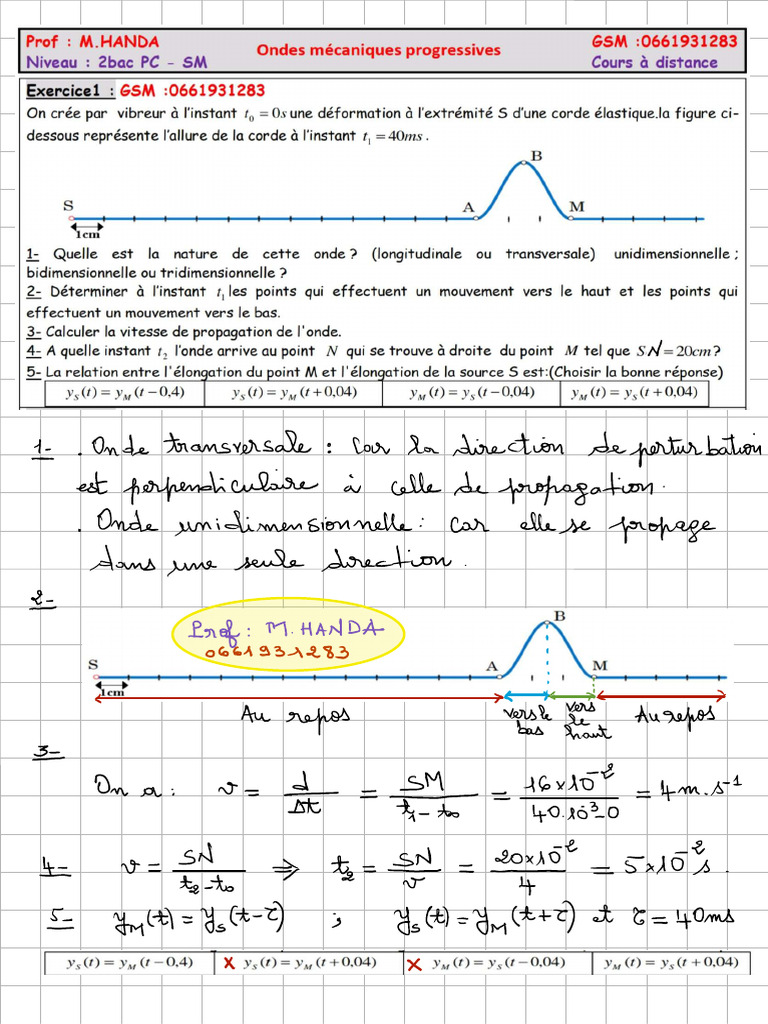 Prof : M.HANDA
Ondes mécaniques progressives
GSM :0661931283
Niveau : 2bac PC - SM
Cours à distance
Exercice1 : GSM :0661931283
On crée par vibreur à l'instant t₀ = 0s une déformation à l'extrémité S d'une corde élastique.la figure ci-
dessous représente l'allure de la corde à l'instant t₁ = 40ms .
B
S
A
M
1cm
1- Quelle est la nature de cette onde ? (longitudinale ou transversale) unidimensionnelle ;
bidimensionnelle ou tridimensionnelle ?
2- Déterminer à l'instant t₁ les points qui effectuent un mouvement vers le haut et les points qui
effectuent un mouvement vers le bas.
3- Calculer la vitesse de propagation de l'onde.
4- A quelle instant t₂ l'onde arrive au point N qui se trouve à droite du point M tel que SN = 20cm ?
5- La relation entre l'élongation du point M et l'élongation de la source S est:(Choisir la bonne réponse)
y_S(t) = y_M(t − 0,4) y_S(t) = y_M(t + 0,04) y_M(t) = y_S(t − 0,04) y_M(t) = y_S(t + 0,04)
1- . Onde transversale : Car la direction de perturbation
est perpendiculaire à celle de propagation.
. Onde unidimensionnelle : car elle se propage
dans une seule direction.
2-
Prof : M. HANDA
0661931283
B
S
A
M
1cm
Au repos
vers le bas
vers le haut
Au repos
3-
On a : v = d/Δt = SM/(t₁ − t₀) = 16×10⁻²/(40.10⁻³ − 0) = 4 m.s⁻¹
4- v = SN/(t₂ − t₀) ⟹ t₂ = SN/v = 20×10⁻²/4 = 5×10⁻² s.
5- y_M(t) = y_S(t − τ) ; y_S(t) = y_M(t + τ) et τ = 40ms
y_S(t) = y_M(t − 0,4) × y_S(t) = y_M(t + 0,04) × y_M(t) = y_S(t − 0,04) y_M(t) = y_S(t + 0,04)